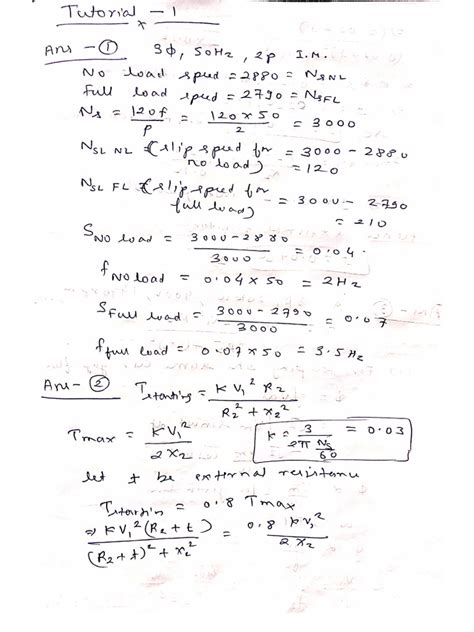 Tutorial - 1
x
Ans - ① 3Φ, 50Hz, 2p I.M.
No load speed = 2880 = NrNL
Full load speed = 2790 = NrFL
Ns = 120f / p = 120 x 50 / 2 = 3000
NSL NL = (slip speed for no load) = 3000 - 2880
= 120
NSL FL = (slip speed for full load) = 3000 - 2790
= 210
S No load = 3000 - 2880 / 3000 = 0.04.
f No load = 0.04 x 50 = 2Hz
S Full load = 3000 - 2790 / 3000 = 0.07
f full load = 0.07 x 50 = 3.5 Hz
Ans - ② Tstarting = K V1² R2 / R2² + x2²
Tmax = K V1² / 2 x2
K = 3 / 2π Ns/60 = 0.03
let t be external resistance
Tstartin = 0.8 Tmax
⇒ K V1² (R2 + t) / (R2 + t)² + x2² = 0.8 K V1² / 2 x2